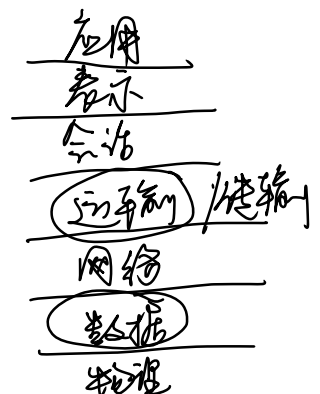 应用
表示
会话
运输 / 传输
网络
数据
物理